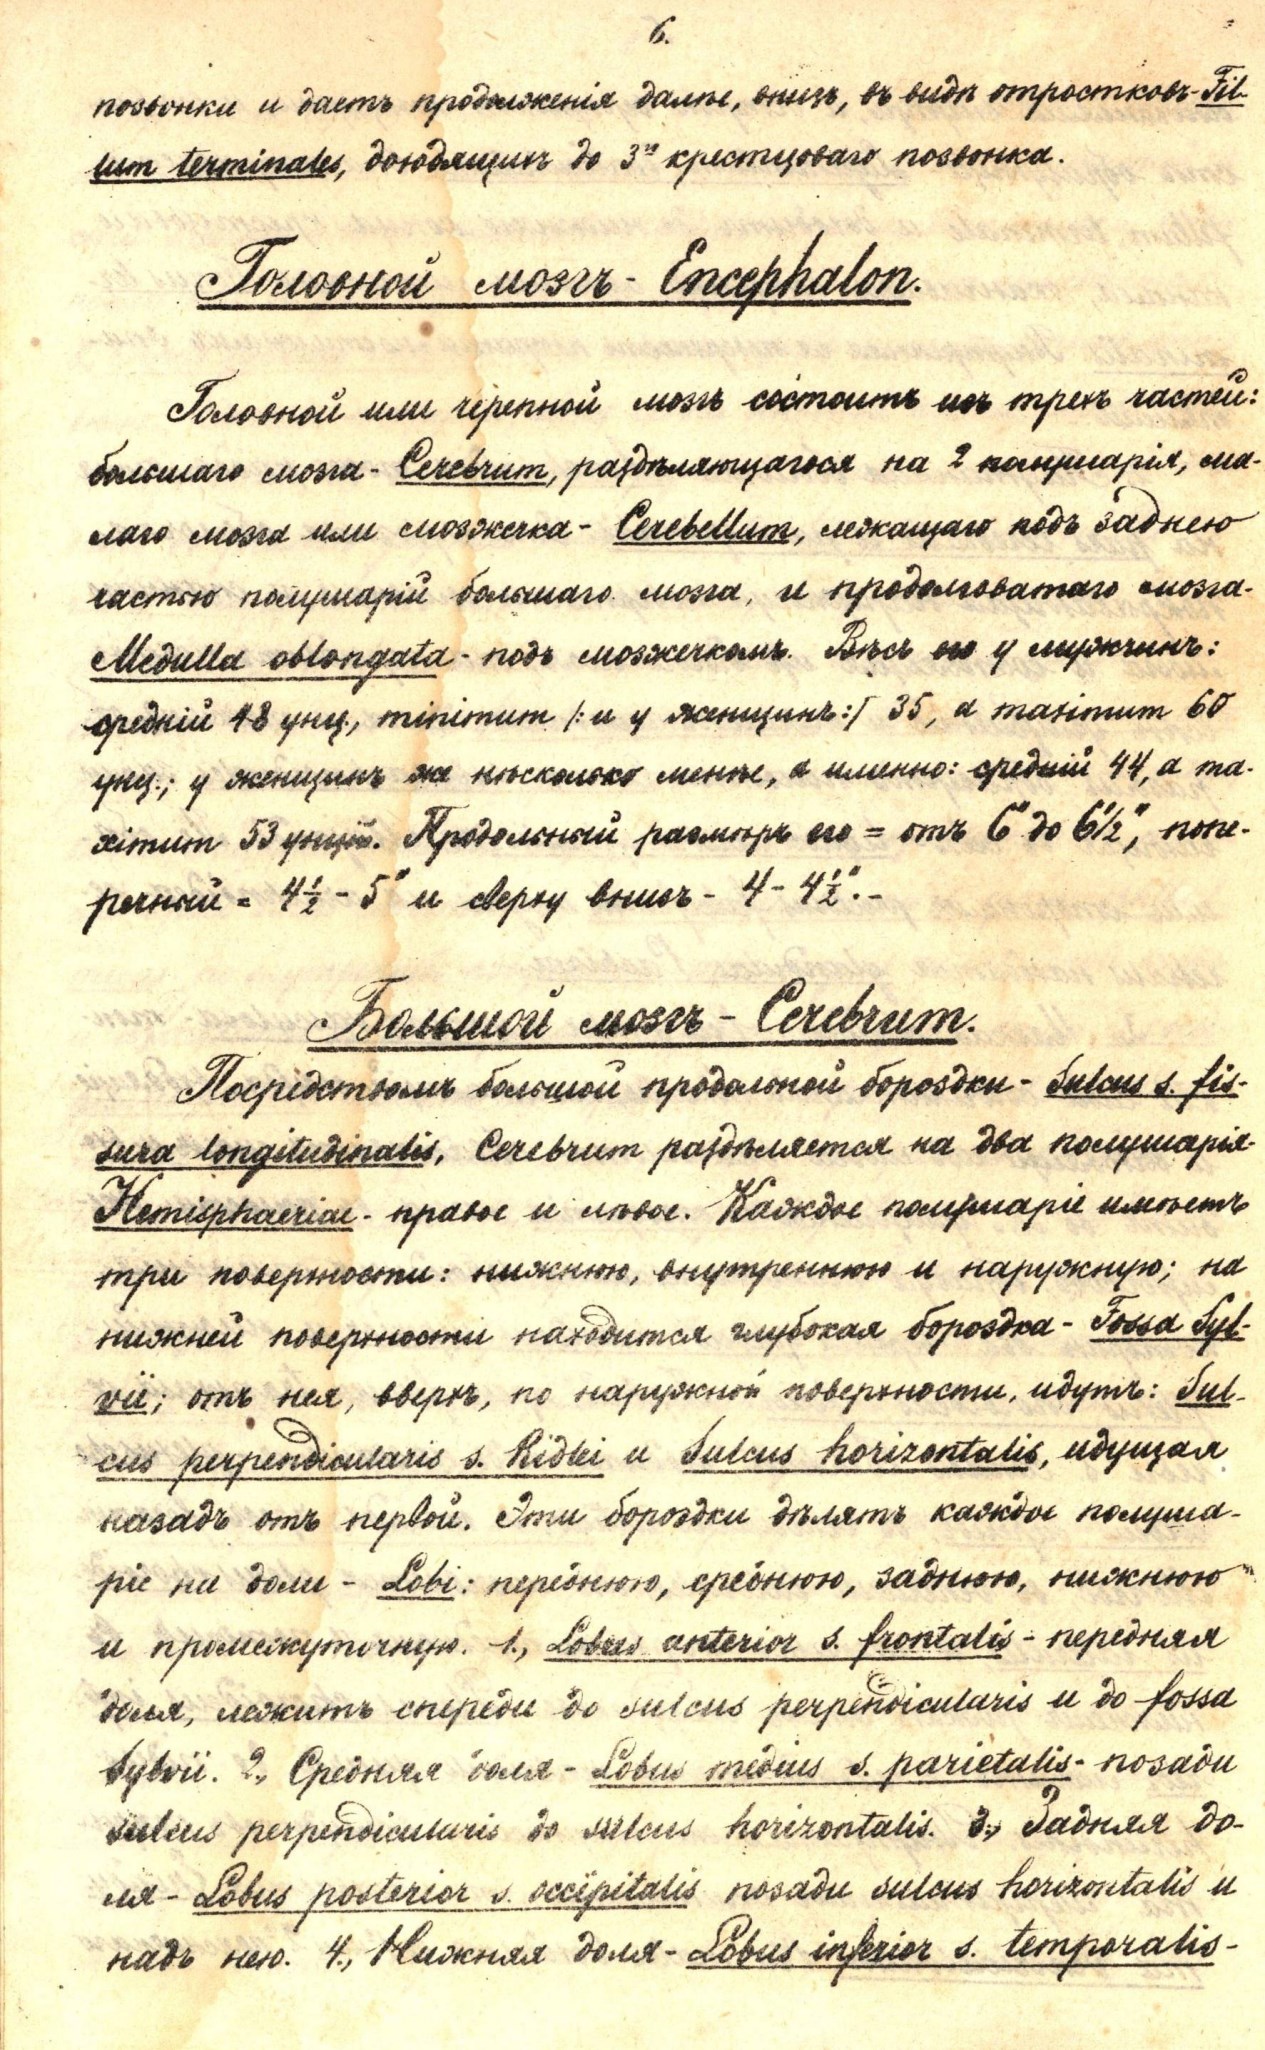 6.
позвонки и даетъ продолженія далѣе, внизъ, въ видѣ отростковъ - Fil-
lum terminales, доходящихъ до 3го крестцоваго позвонка.
Головной мозгъ - Encephalon.
Головной или черепной мозгъ состоитъ изъ трехъ частей:
большаго мозга - Cerebrum, раздѣляющагося на 2 полушарія, ма-
лаго мозга или мозжечка - Cerebellum, лежащаго подъ заднею
частью полушарій большаго мозга, и продолговатаго мозга -
Medulla oblongata - подъ мозжечкомъ. Вѣсъ его у мужчинъ:
средній 48 унц., minimum /: и у женщинъ :/ 35, а maximum 60
унц.; у женщинъ же нѣсколько менѣе, а именно: средній 44, а ma-
ximum 53 унцій. Продольный размѣръ его = отъ 6" до 6½", попе-
речный = 4½ - 5" и сверху внизъ - 4 - 4½". -
Большой мозгъ - Cerebrum.
Посредствомъ большой продольной бороздки - Sulcus s. fis-
sura longitudinalis, Cerebrum раздѣляется на два полушарія -
Hemisphaeriae - правое и лѣвое. Каждое полушаріе имѣетъ
три поверхности: нижнюю, внутреннюю и наружную; на
нижней поверхности находится глубокая бороздка - Fossa Syl-
vii; отъ нея, вверхъ, по наружной поверхности, идутъ: Sul-
cus perpendicularis s. Ridlei и Sulcus horizontalis, идущая
назадъ отъ первой. Эти бороздки дѣлятъ каждое полуша-
ріе на доли - Lobi: переднюю, среднюю, заднюю, нижнюю
и промежуточную. 1., Lobus anterior s. frontalis - передняя
доля, лежитъ спереди до sulcus perpendicularis и до fossa
Sylvii. 2., Средняя доля - Lobus medius s. parietalis - позади
sulcus perpendicularis до sulcus horizontalis. 3., Задняя до-
ля - Lobus posterior s. occipitalis позади sulcus horizontalis и
надъ нею. 4., Нижняя доля - Lobus inferior s. temporalis -